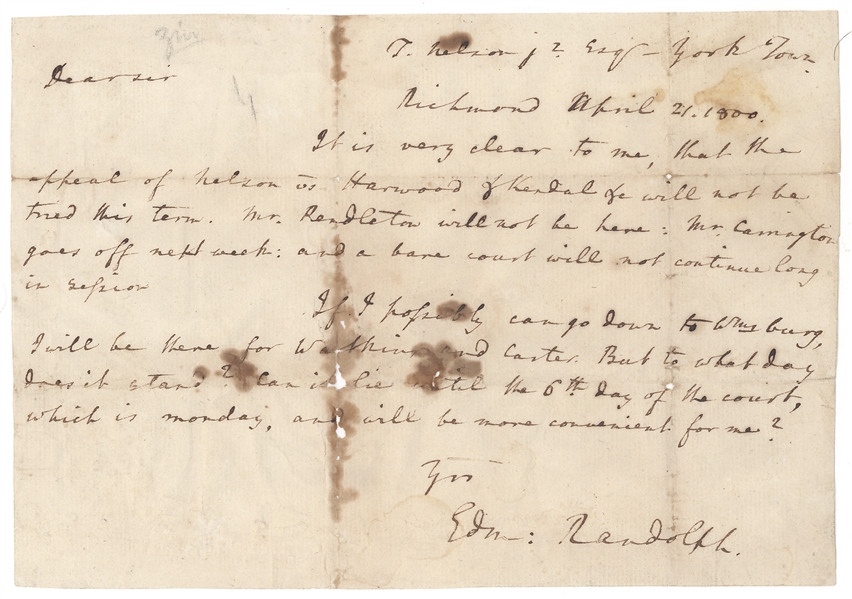 T. Nelson jr. Esqr - York Town.
Dear sir
Richmond April 21. 1800.
It is very clear to me, that the
appeal of Nelson vs Harwood & Kendal &c will not be
tried this term. Mr. Pendleton will not be here: Mr. Carrington
goes off next week: and a bare court will not continue long
in session
If I possibly can go down to Wmsburg,
I will be there for Watkins and Carter. But to what day
does it stand? Can it lie until the 6th day of the court,
which is monday, and will be more convenient for me?
Yrs
Edm: Randolph.